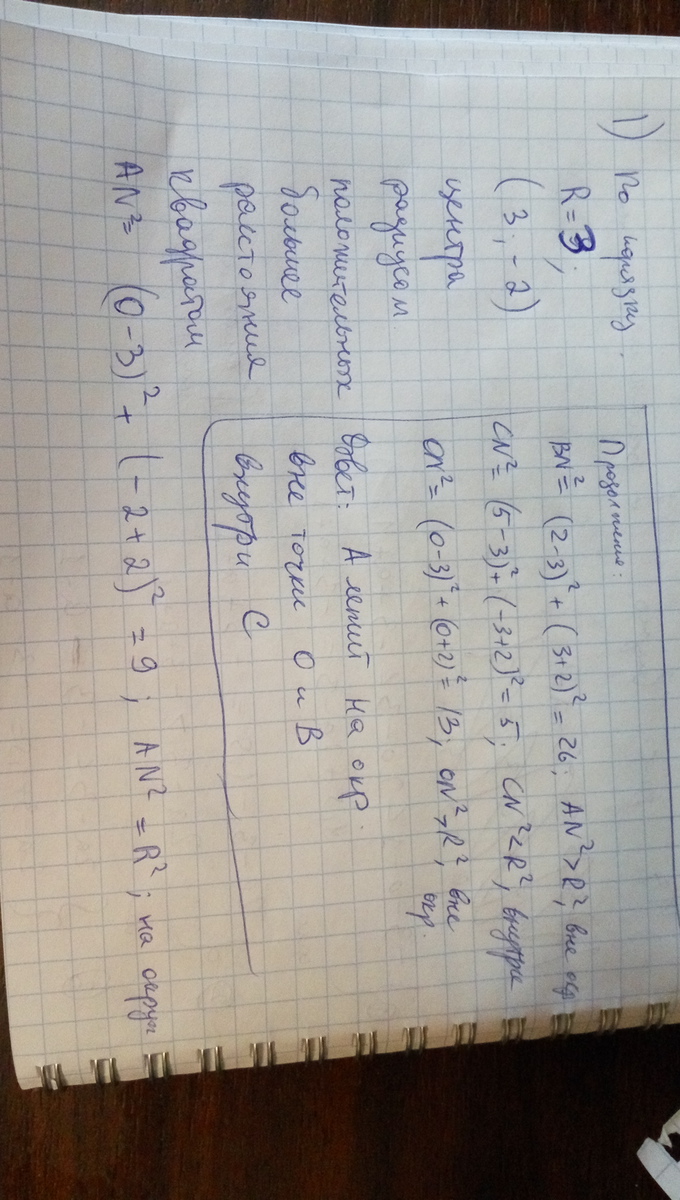 1) По порядку.
R=3;
(3; -2)
центра
радиусом
положительных
большее
расстояния
квадратом
AN²= (0-3)² + (-2+2)² = 9; AN² = R²; на окруж
Продолжение:
BN²= (2-3)² + (3+2)² = 26; AN²>R², вне окр
CN²= (5-3)²+(-3+2)²=5; CN²<R², внутри
ON²= (0-3)²+(0+2)²=13; ON²>R², вне окр.
Ответ: A лежит на окр.
вне точки O и B
внутри C